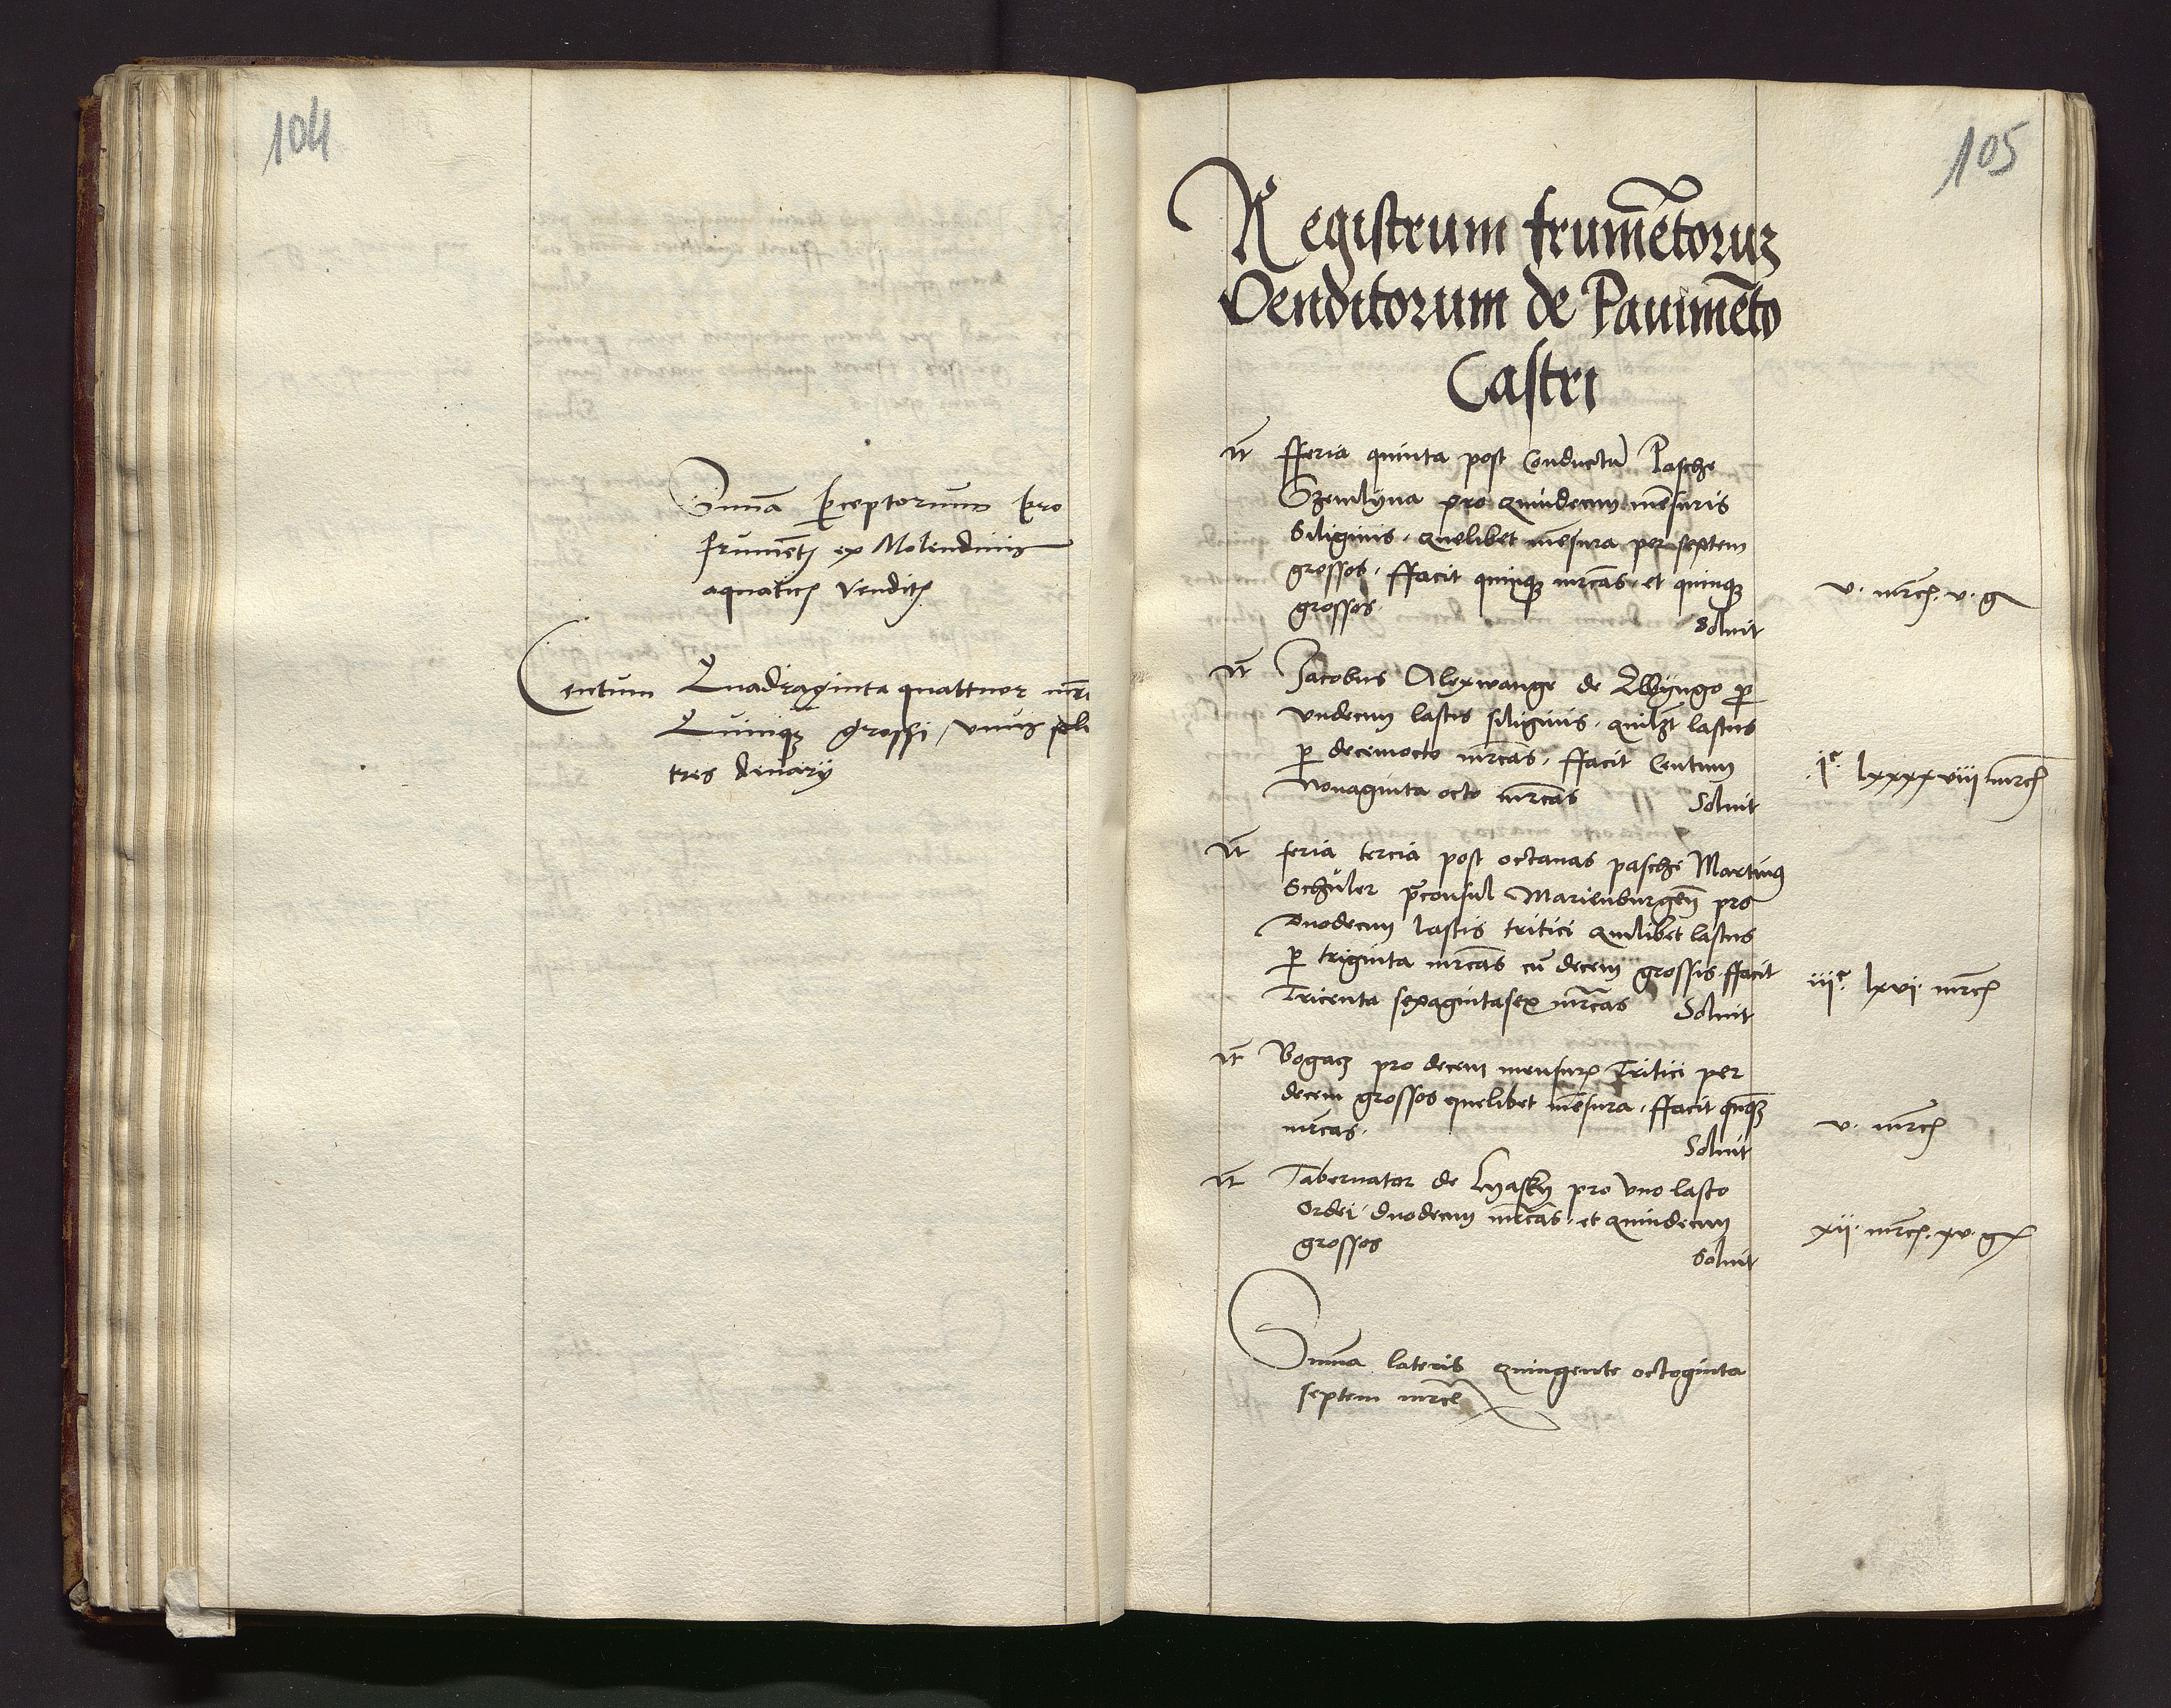 104
Suma ꝑceptorum pro
frumēt ex Molendinis
aquatic vendit
Centum Quadraginta quattuor mr
Quinqz grossi / vnus soli
tres denarij
105
Registrum frumētoruz
Venditorum de Pauimēto
Castri
It fferia quinta post Conductū Pasche
pro quindecim mēsuris
Siliginis . quelibet mēsura per septem
grossos . ffacit quinqz mrcas . et quinqz
grossos .
Soluit
v . mrc . v . g
It Jacobus Alexwange de ꝑ
vndecim lastis siliginis . quilzt lastus
ꝑ decemocto mrcas . ffacit Centum
Nonaginta octo mrcas Soluit
jᶜ lxxxxviij mrc
It feria tercia post octauas pasche Martinus
Schuler ꝓconsul Marienburgeñ pro
duodecim lastis tritici quilibet lastus
ꝑ triginta mrcas cū decem grossis ffacit
Tricenta sexagintasex mrcas Soluit
iijᶜ lxvj mrc
It Bogacz pro decem mensur Tritici per
decem grossos quelibet mēsura . ffacit quīqz
mrcas .
Soluit
v . mrc
It Tabernator de Lyasky pro vno lasto
Ordei duodecim mrcas . et quindecim
grossos
Soluit
xij . mrc . xv . g
Suma lateris quingente octoginta
septem mrce